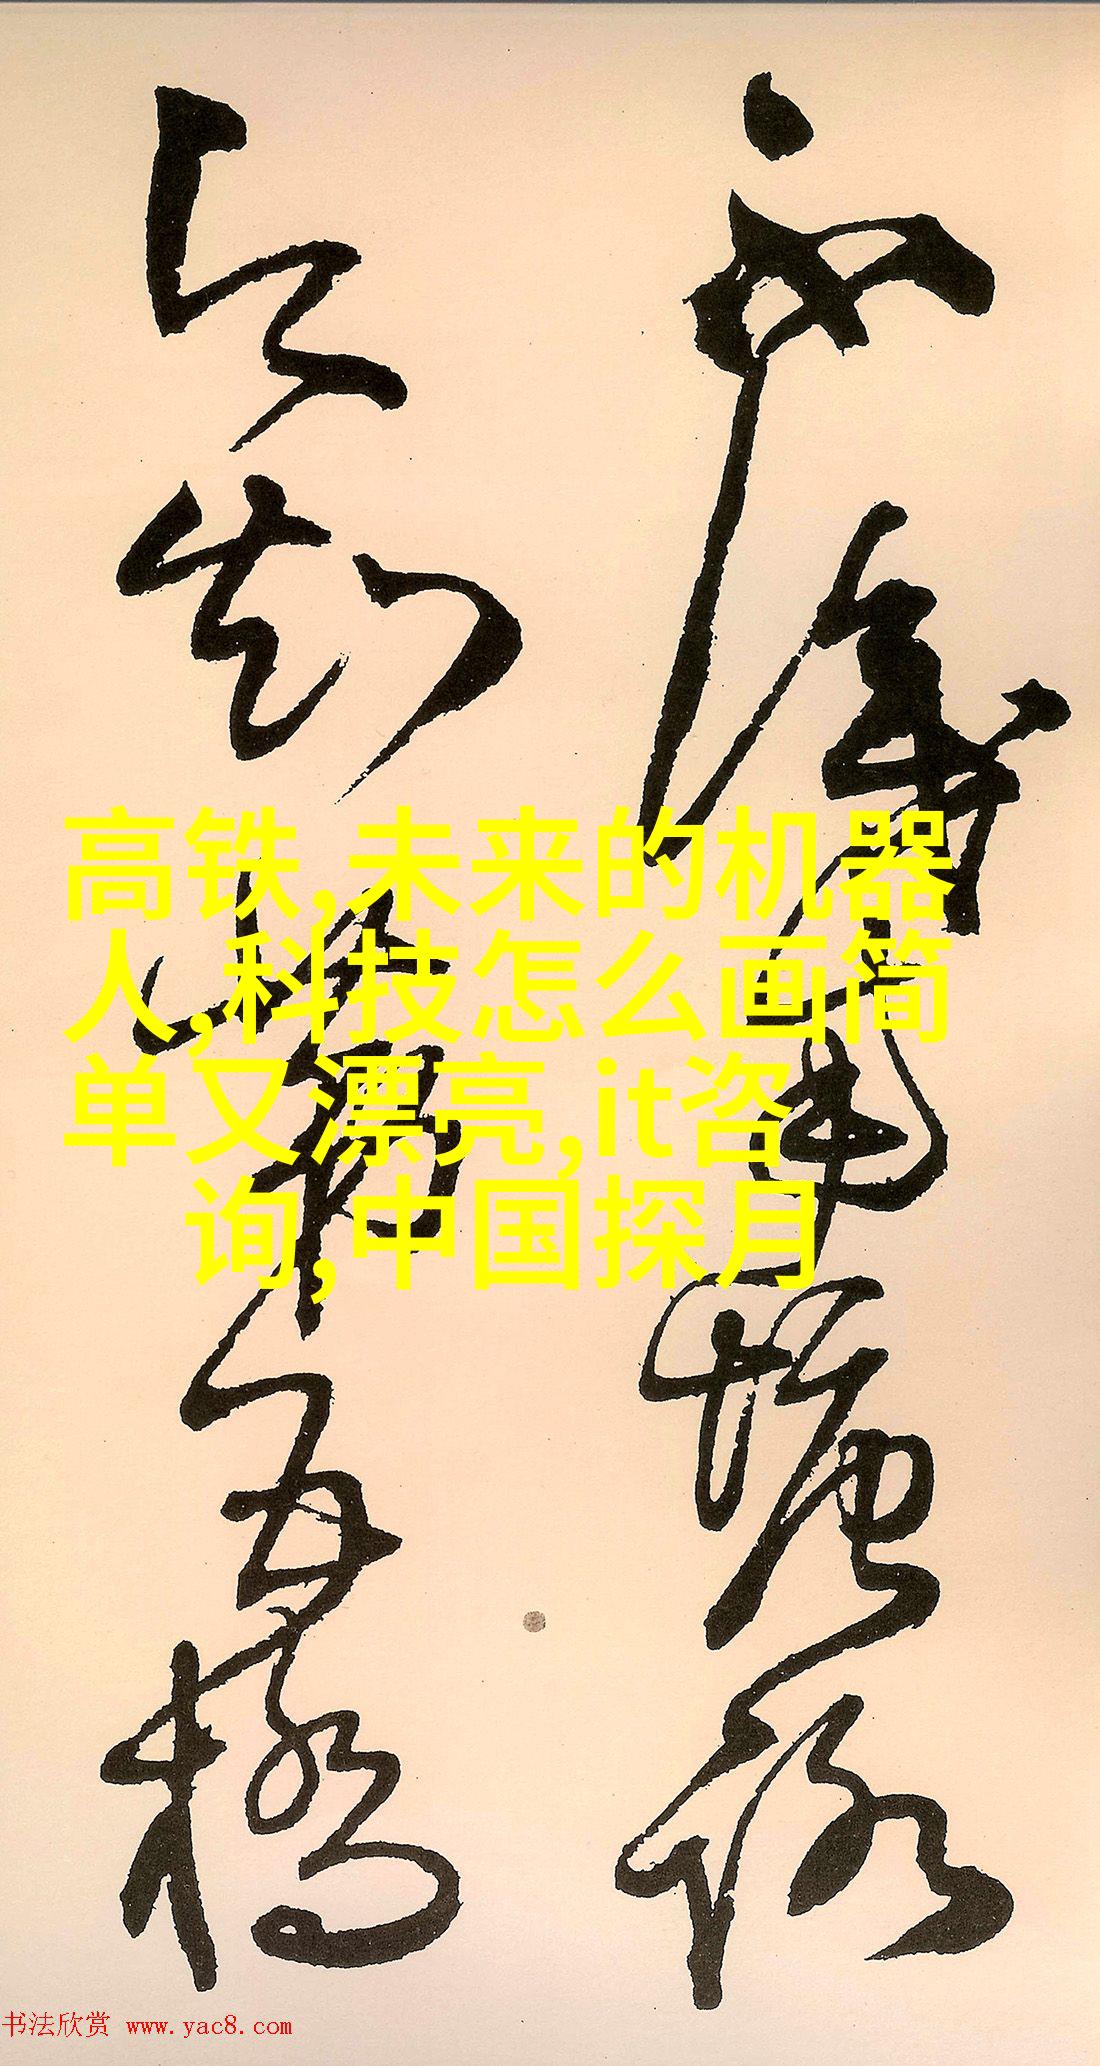 不識南塘路
今知第五橋
高铁,未来的机器
人,科技怎么画简
单又漂亮,it咨
询,中国探月
书法欣赏 www.yac8.com